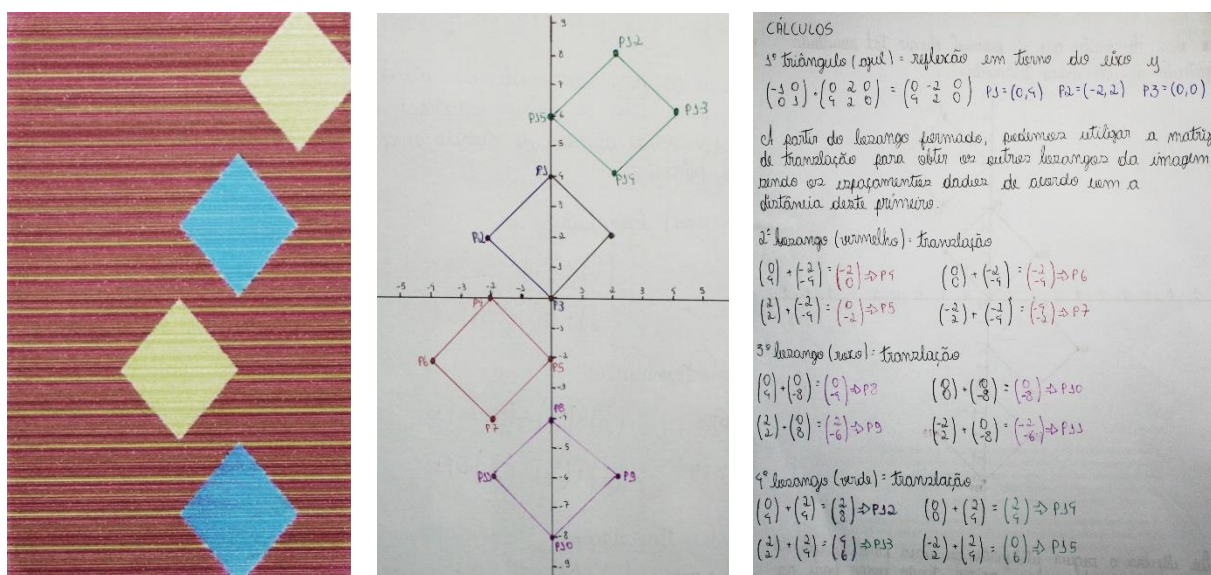 9
8
7
6
5
4
3
2
1
-5 -4 -3 -2 -1
1 2 3 4 5
-1
-2
-3
-4
-5
-6
-7
-8
-9
P12
P15 P13
P14
P1
P2
P3
P4
P6 P5
P7
P8
P11 P9
P10
CÁLCULOS
1º triângulo (azul) = reflexão em torno do eixo y
(-1 0 / 0 1) · (0 2 0 / 4 2 0) = (0 -2 0 / 4 2 0) P1=(0,4) P2=(-2,2) P3=(0,0)
A partir do losango formado, podemos utilizar a matriz
de translação para obter os outros losangos da imagem
sendo os espaçamentos dados de acordo com a
distância deste primeiro.
2º losango (vermelho) = translação
(0 / 4) + (-2 / -4) = (-2 / 0) ⇒ P4 (0 / 0) + (-2 / -4) = (-2 / -4) ⇒ P6
(2 / 2) + (-2 / -4) = (0 / -2) ⇒ P5 (-2 / 2) + (-2 / -4) = (-4 / -2) ⇒ P7
3º losango (roxo) = translação
(0 / 4) + (0 / -8) = (0 / -4) ⇒ P8 (0 / 0) + (0 / -8) = (0 / -8) ⇒ P10
(2 / 2) + (0 / 8) = (2 / -6) ⇒ P9 (-2 / 2) + (0 / -8) = (-2 / -6) ⇒ P11
4º losango (verde) = translação
(0 / 4) + (2 / 4) = (2 / 8) ⇒ P12 (0 / 0) + (2 / 4) = (2 / 4) ⇒ P14
(2 / 2) + (2 / 4) = (4 / 6) ⇒ P13 (-2 / 2) + (2 / 4) = (0 / 6) ⇒ P15